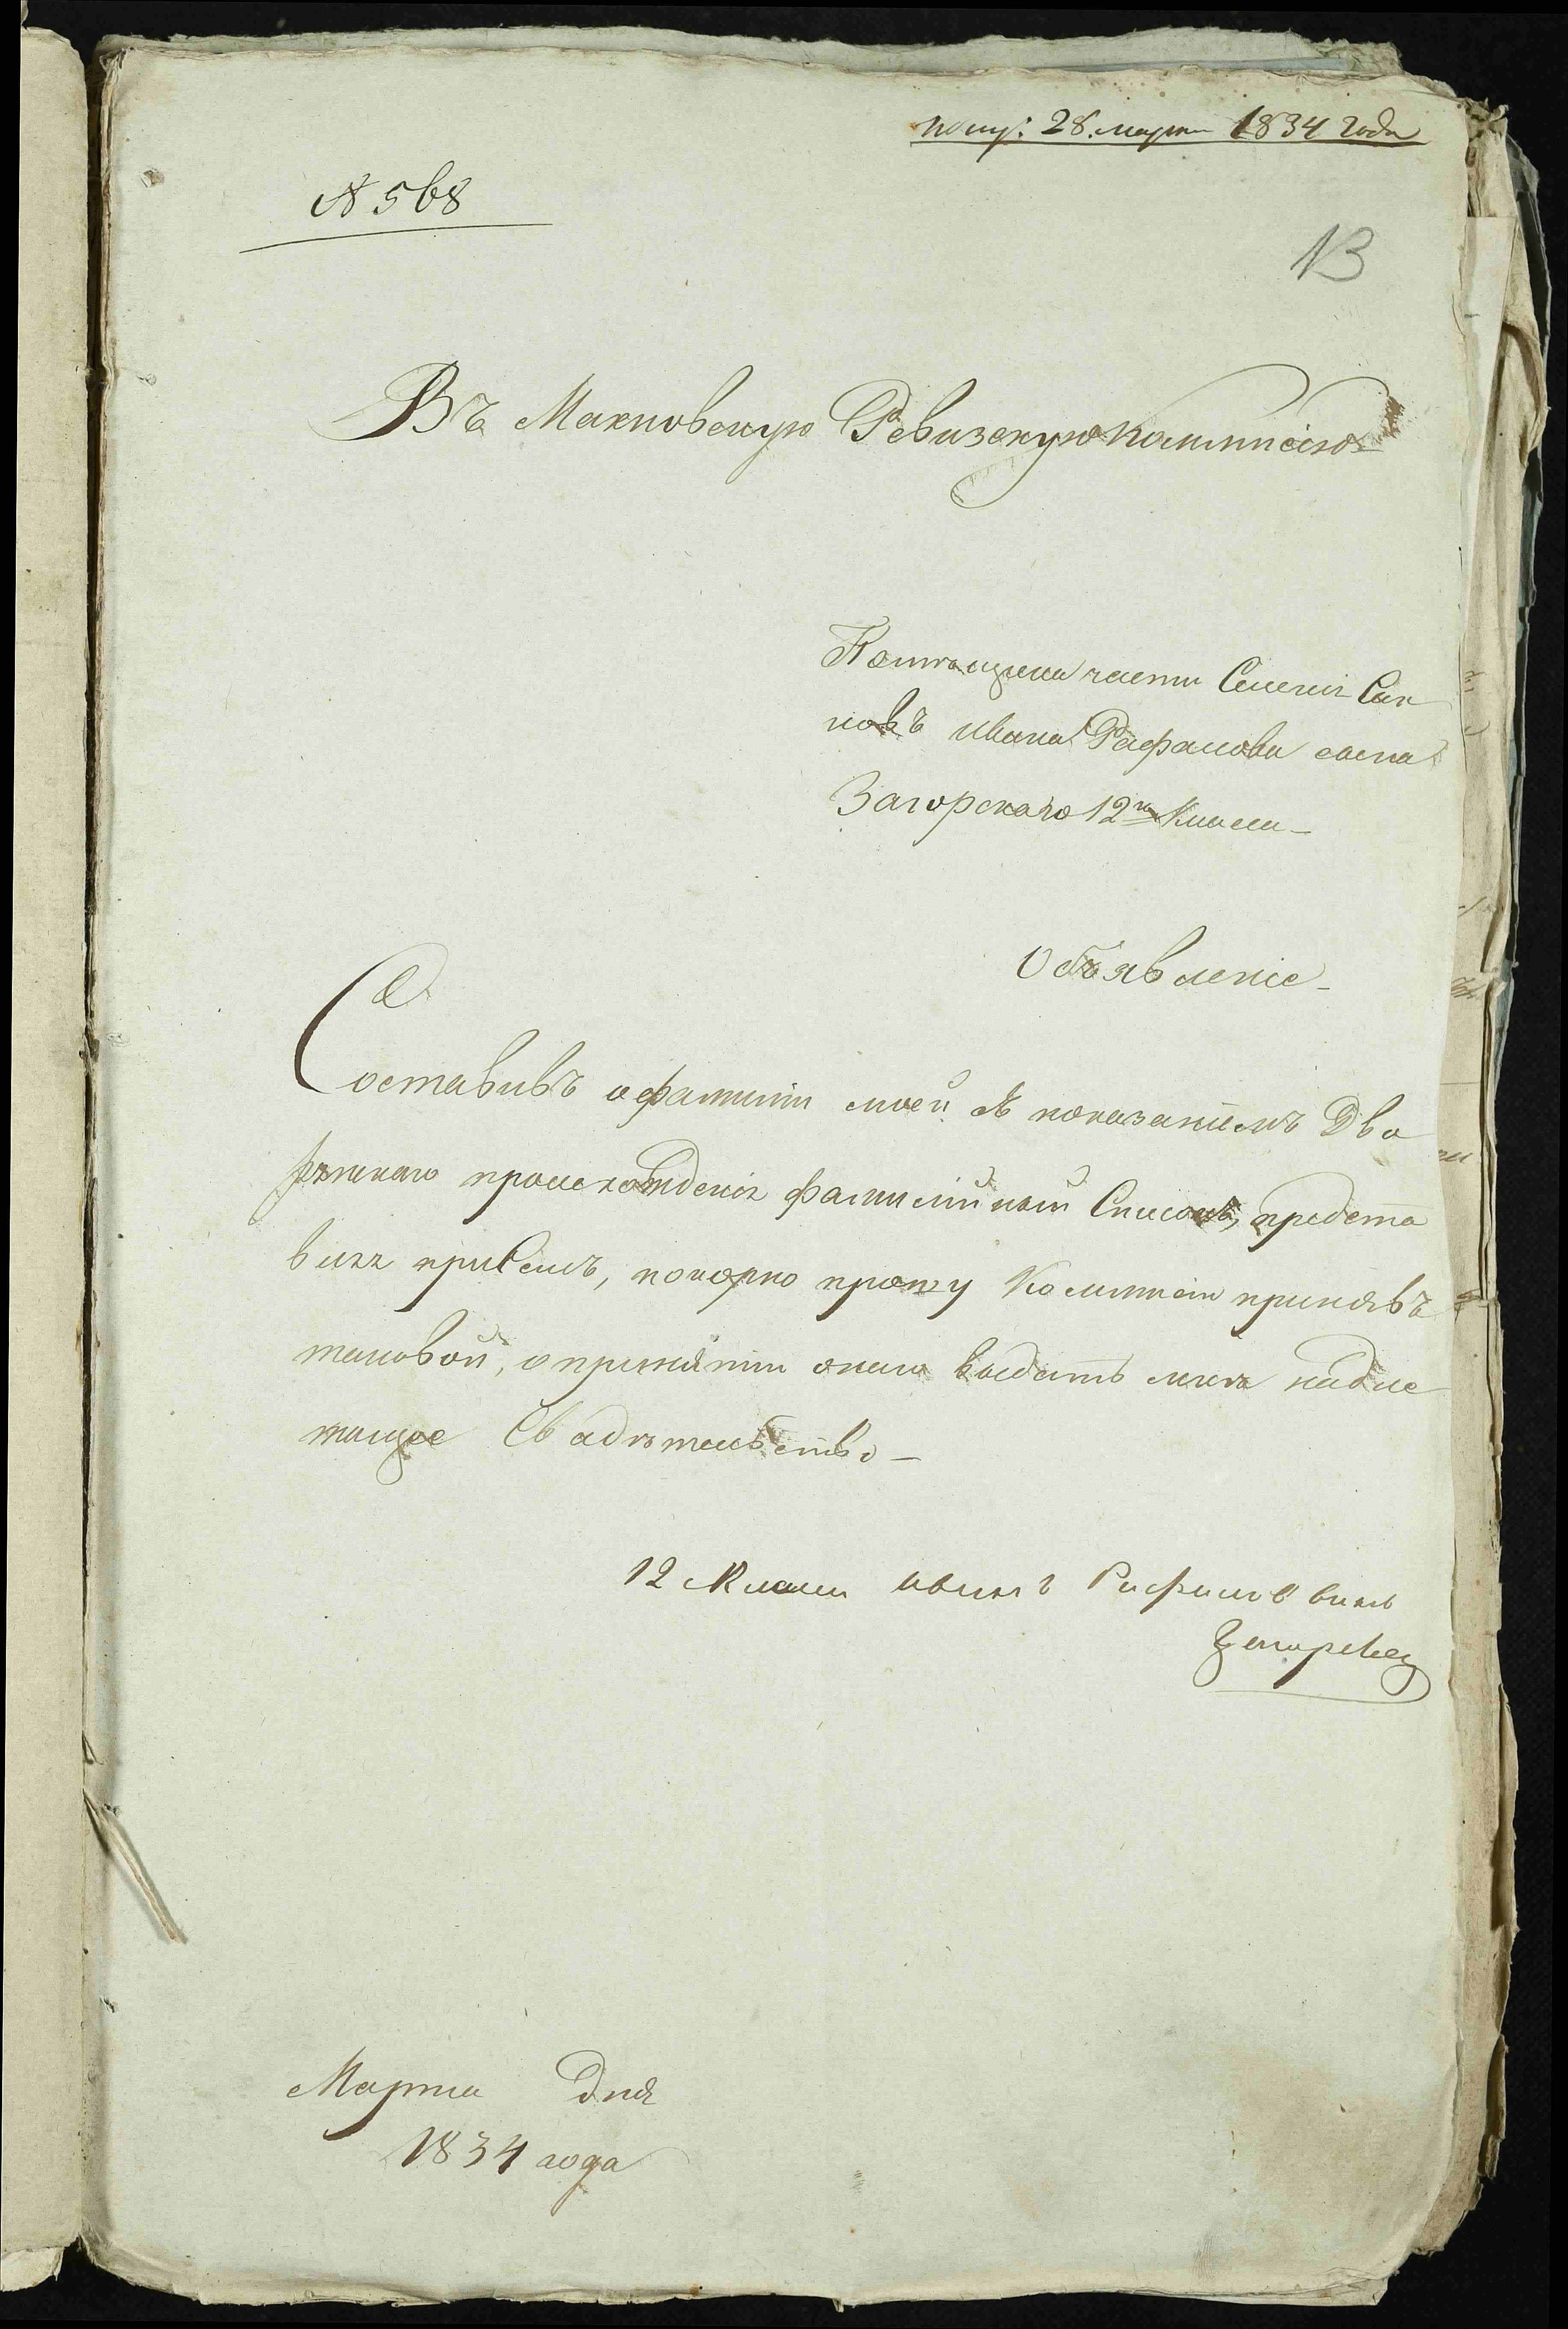 полу: 28. марта 1834 года
№ 568
13
Въ Махновскую Ревизскую коммисію
части Селенія Сах
новъ Ивана Рафалова сына
Загорскаго 12го Класса
Объявленіе
Составивъ о фамиліи моей съ показаніемъ Дво
рянскаго происхожденія фамилійный Списокъ, предста
вляя присемъ, покорно прошу Коммисіи принявъ
таковой, о принятіи онаго выдать мнѣ надле
жащее Свидѣтельство
12 Класса Иванъ Рафаловъ сынъ
Загорскій
Марта Дня
1834 года